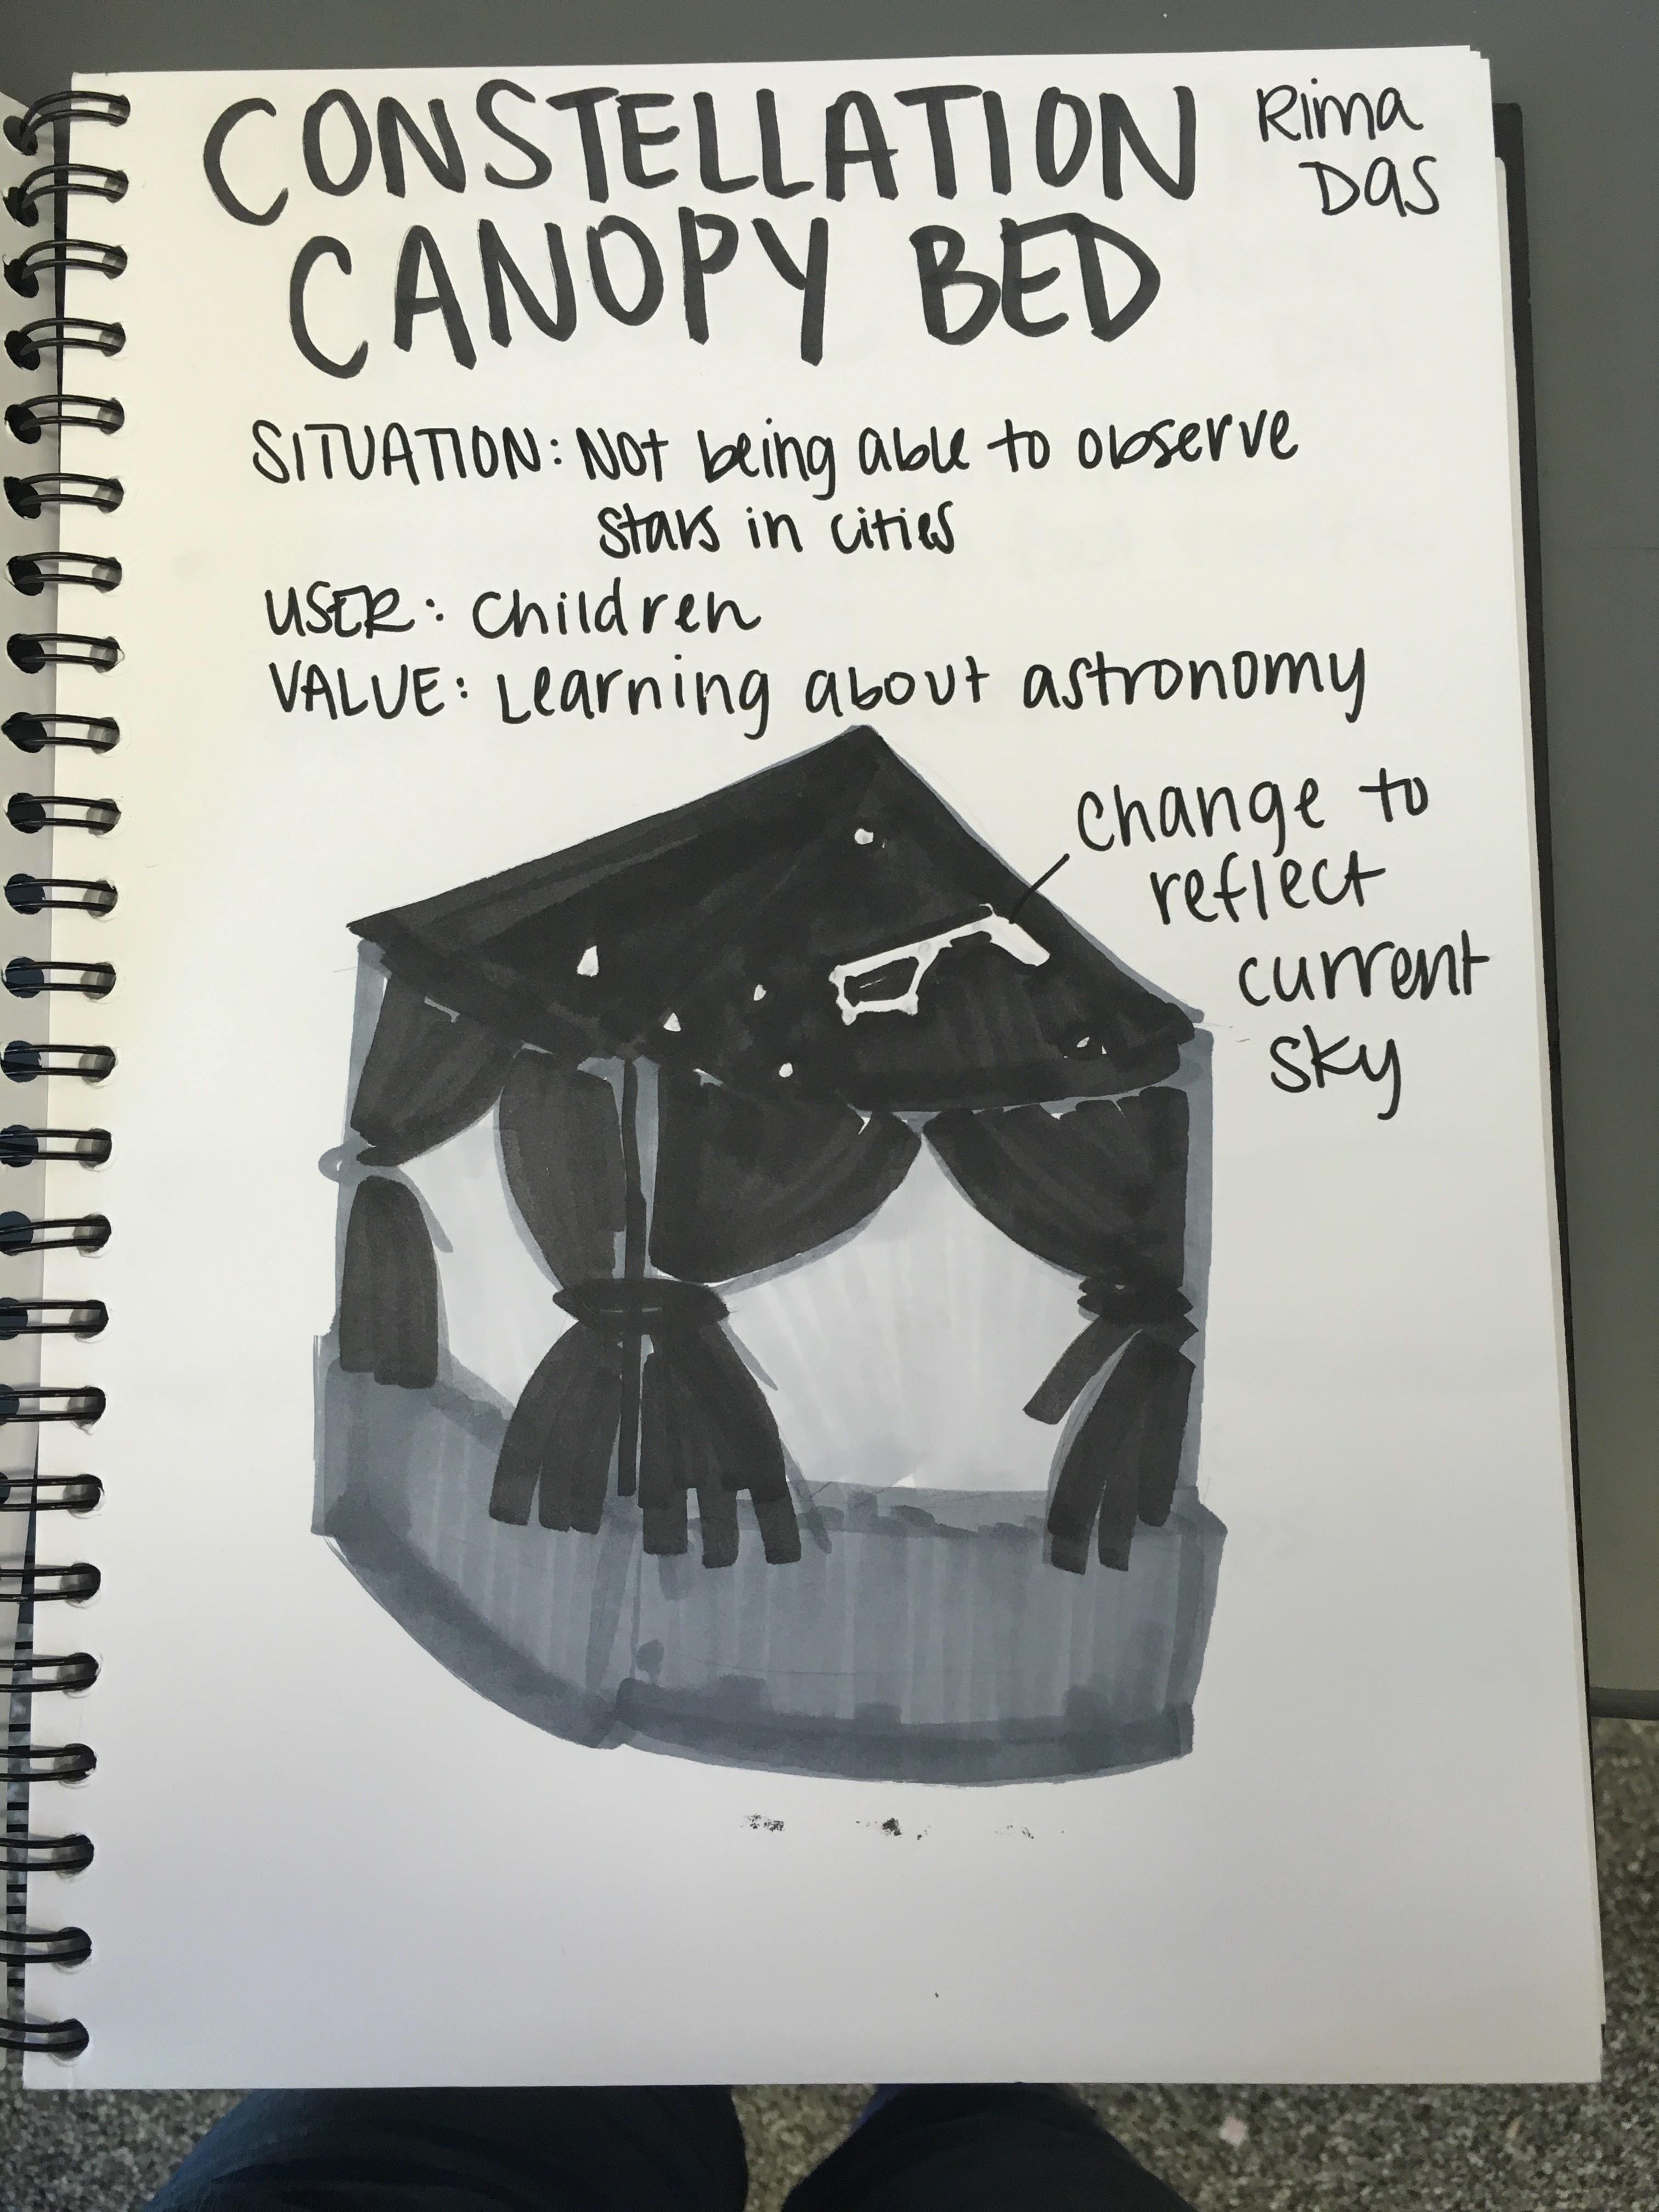 CONSTELLATION
CANOPY BED
Rima
Das
SITUATION: Not being able to observe
stars in cities
USER: Children
VALUE: Learning about astronomy
change to
reflect
current
sky